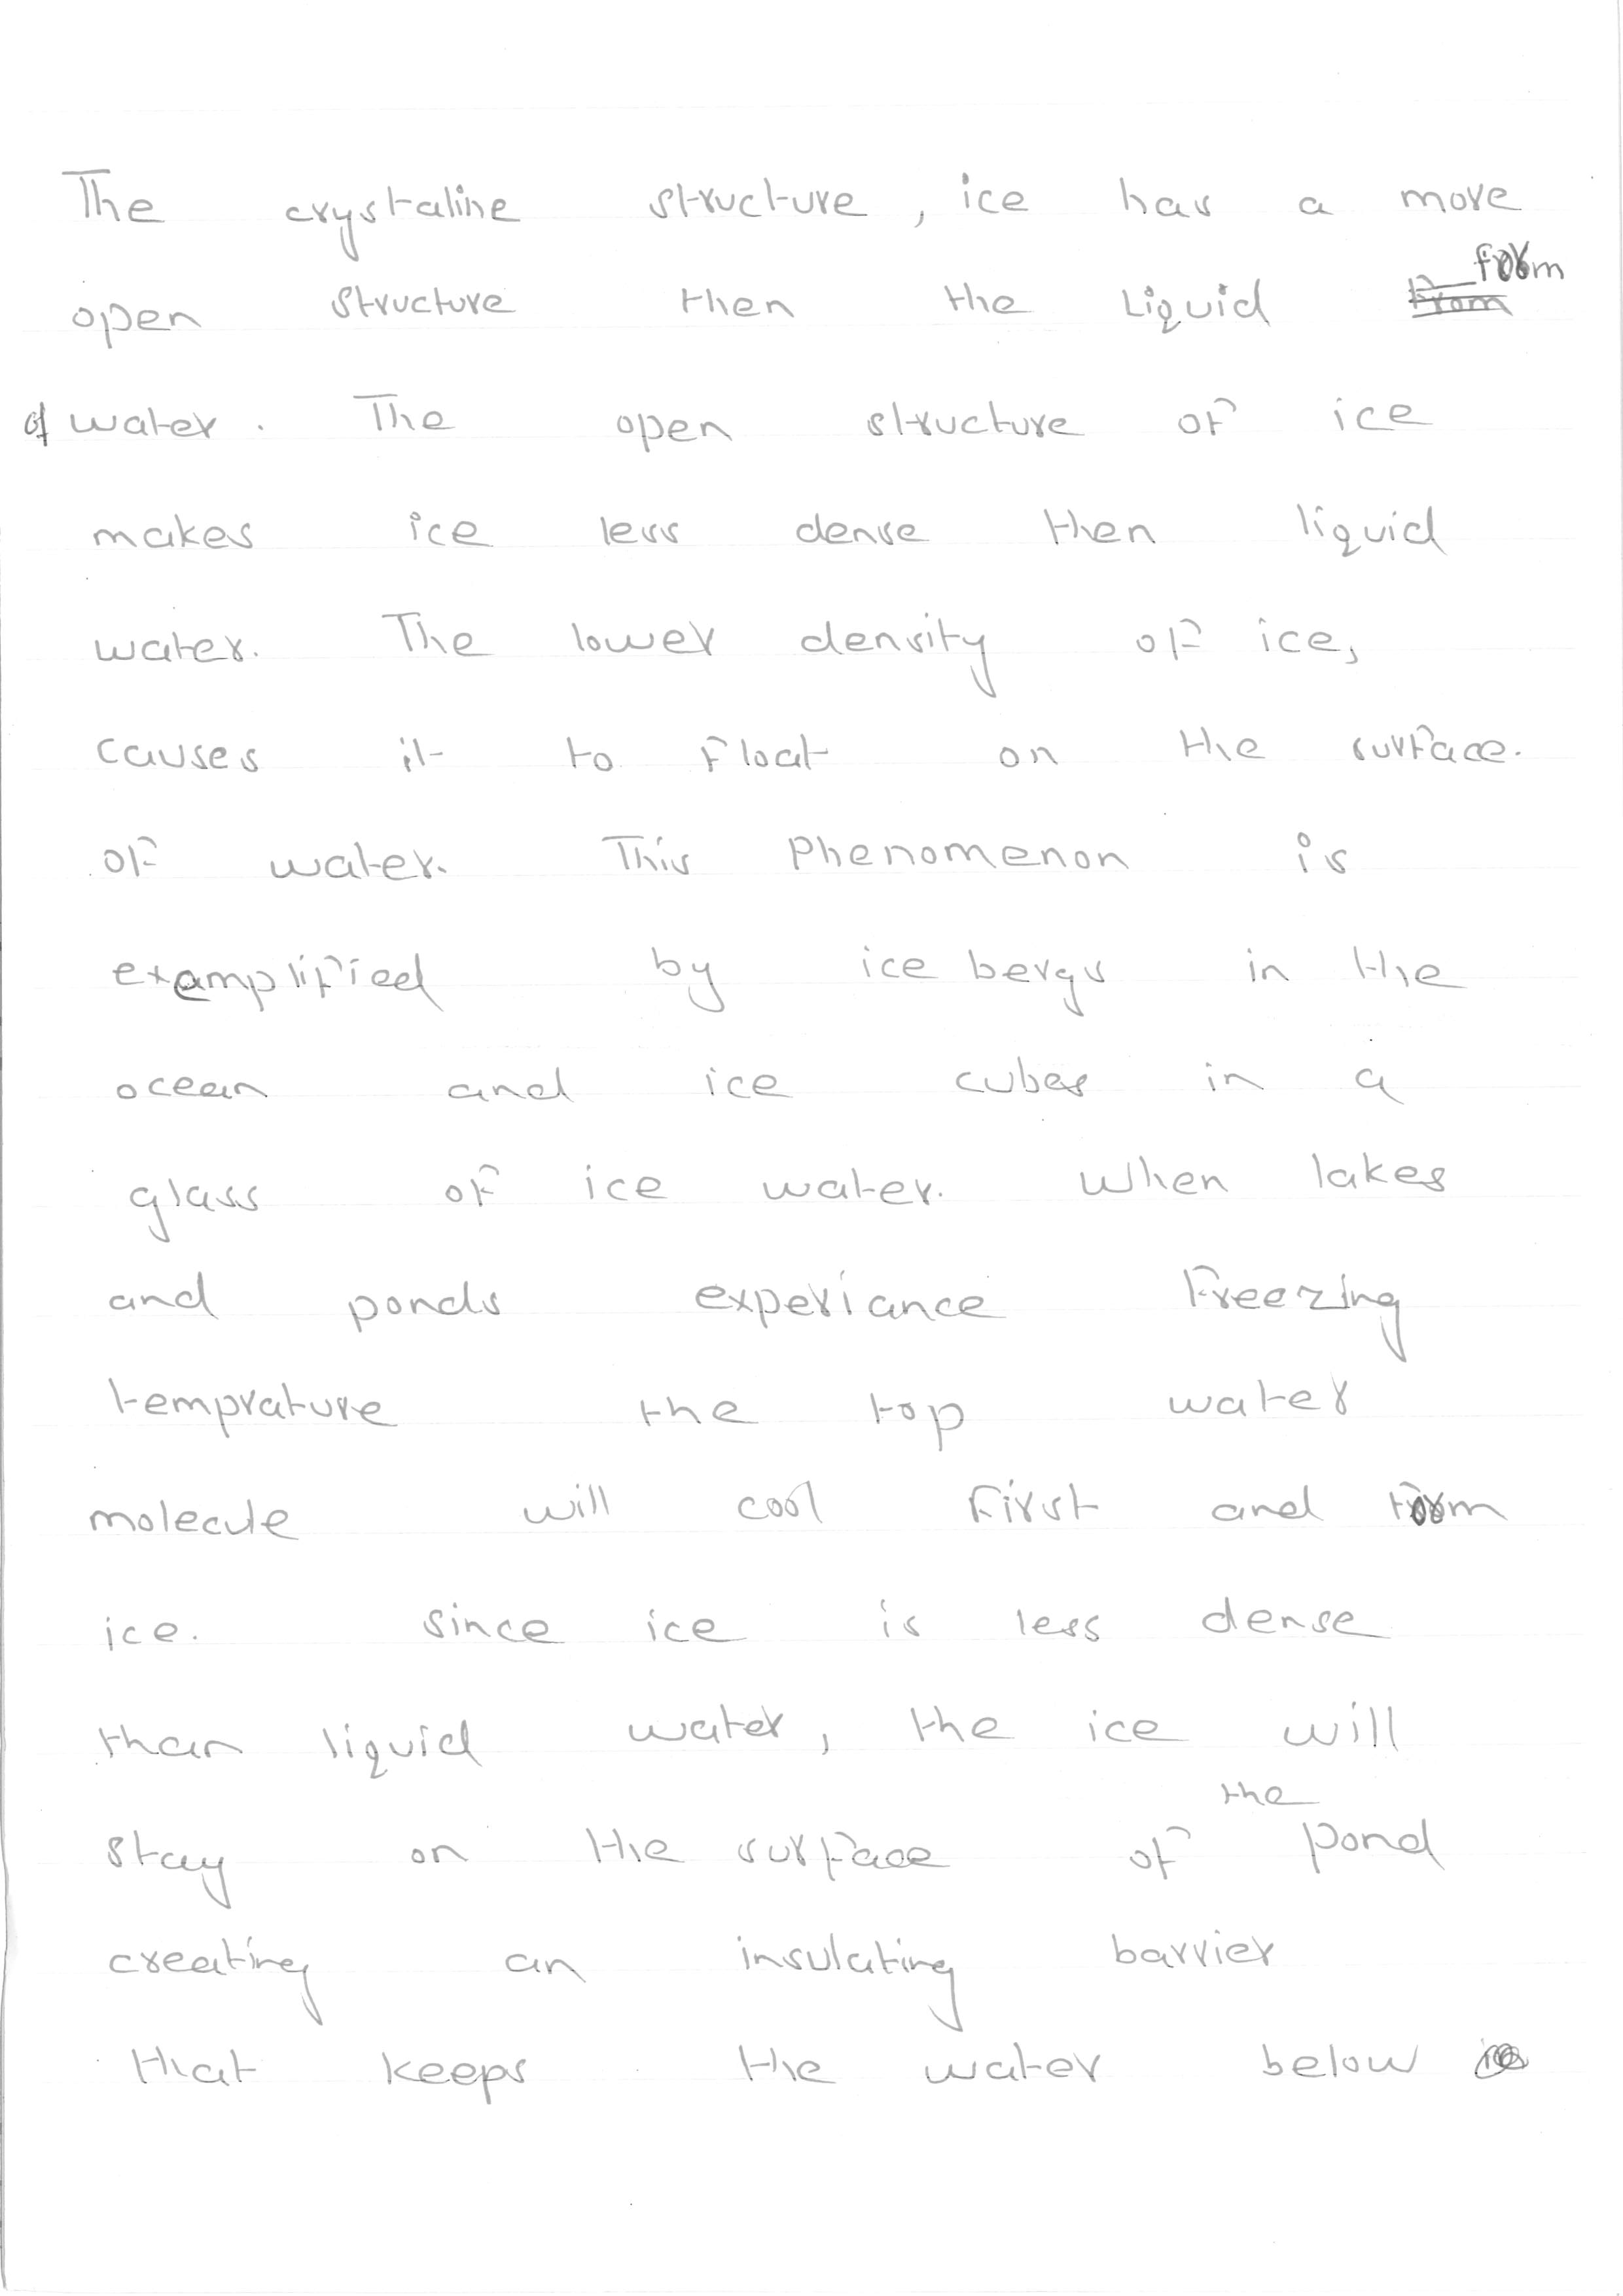 The crystaline structure, ice has a more
open structure then the Liquid form
of water. The open structure of ice
makes ice less dense then liquid
water. The lower density of ice,
causes it to float on the surface.
of water. This Phenomenon is
examplified by ice bergs in the
ocean and ice cubes in a
glass of ice water. When lakes
and ponds experiance Freezing
temprature the top water
molecule will cool First and form
ice. since ice is less dense
than liquid water, the ice will
stay on the surface of the pond
creating an insulating barrier
that keeps the water below